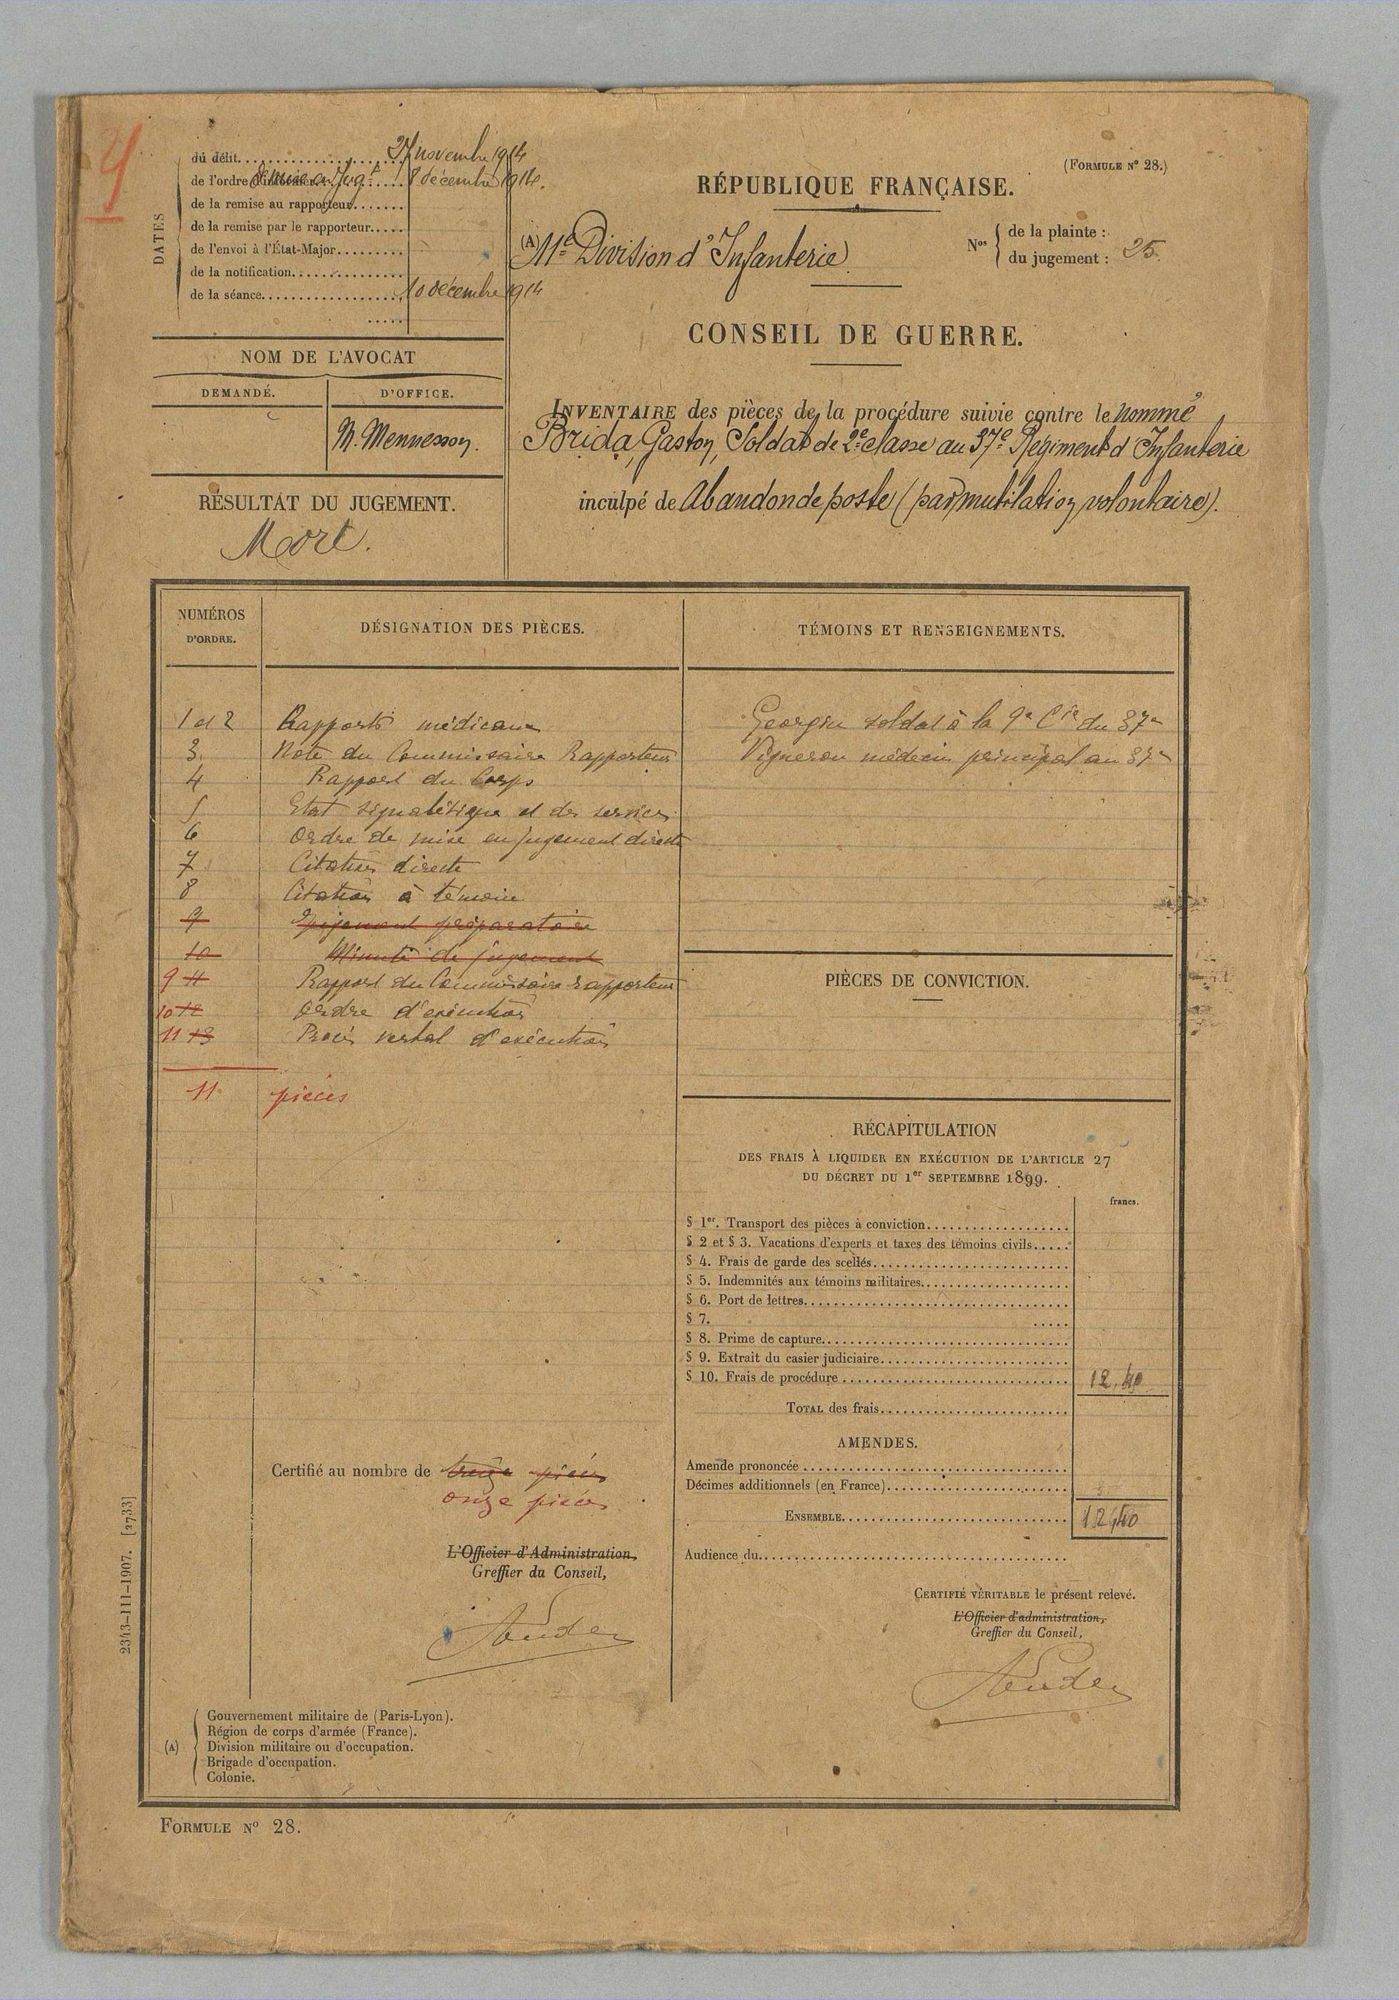 4
DATES
du délit 27 novembre 1914
de l'ordre de mise en Jugt 8 décembre 1914.
de la remise au rapporteur
de la remise par le rapporteur
de l'envoi à l'État-Major
de la notification
de la séance 10 décembre 1914
NOM DE L'AVOCAT
DEMANDÉ.
D'OFFICE.
M. Mennesson.
RÉSULTAT DU JUGEMENT.
Mort.
(FORMULE N° 28.)
RÉPUBLIQUE FRANÇAISE.
(A) 11e Division d'Infanterie
Nos
de la plainte :
du jugement : 25.
CONSEIL DE GUERRE.
INVENTAIRE des pièces de la procédure suivie contre le nommé
Brida, Gaston, Soldat de 2e classe au 37e Régiment d'Infanterie
inculpé de Abandon de poste (par mutilation volontaire).
NUMÉROS
D'ORDRE.
DÉSIGNATION DES PIÈCES.
TÉMOINS ET RENSEIGNEMENTS.
1 et 2 Rapports médicaux
3. Note du Commissaire Rapporteur
4 Rapport du Corps
5 Etat signalétique et des services
6 Ordre de mise en jugement directe
7 Citation directe
8 Citation à témoin
9 préparatoire
10 Minute de jugement
9 11 Rapport du Commissaire rapporteur
10 12 Ordre d'exécution
11 13 Procès verbal d'exécution
11 pièces
Georgin soldat à la 9e Cie du 37e
Vigneron médecin principal au 37e
PIÈCES DE CONVICTION.
RÉCAPITULATION
DES FRAIS À LIQUIDER EN EXÉCUTION DE L'ARTICLE 27
DU DÉCRET DU 1er SEPTEMBRE 1899.
francs.
§ 1er. Transport des pièces à conviction
§ 2 et § 3. Vacations d'experts et taxes des témoins civils
§ 4. Frais de garde des scellés
§ 5. Indemnités aux témoins militaires
§ 6. Port de lettres
§ 7.
§ 8. Prime de capture
§ 9. Extrait du casier judiciaire
§ 10. Frais de procédure 12,40
TOTAL des frais
AMENDES.
Amende prononcée
Décimes additionnels (en France)
ENSEMBLE 12,40
Audience du
CERTIFIÉ VÉRITABLE le présent relevé.
L'Officier d'administration,
Greffier du Conseil,
Certifié au nombre de treize pièces
onze pièces
L'Officier d'Administration,
Greffier du Conseil,
(A)
Gouvernement militaire de (Paris-Lyon).
Région de corps d'armée (France).
Division militaire ou d'occupation.
Brigade d'occupation.
Colonie.
2343-111-1907. [2733]
FORMULE N° 28.